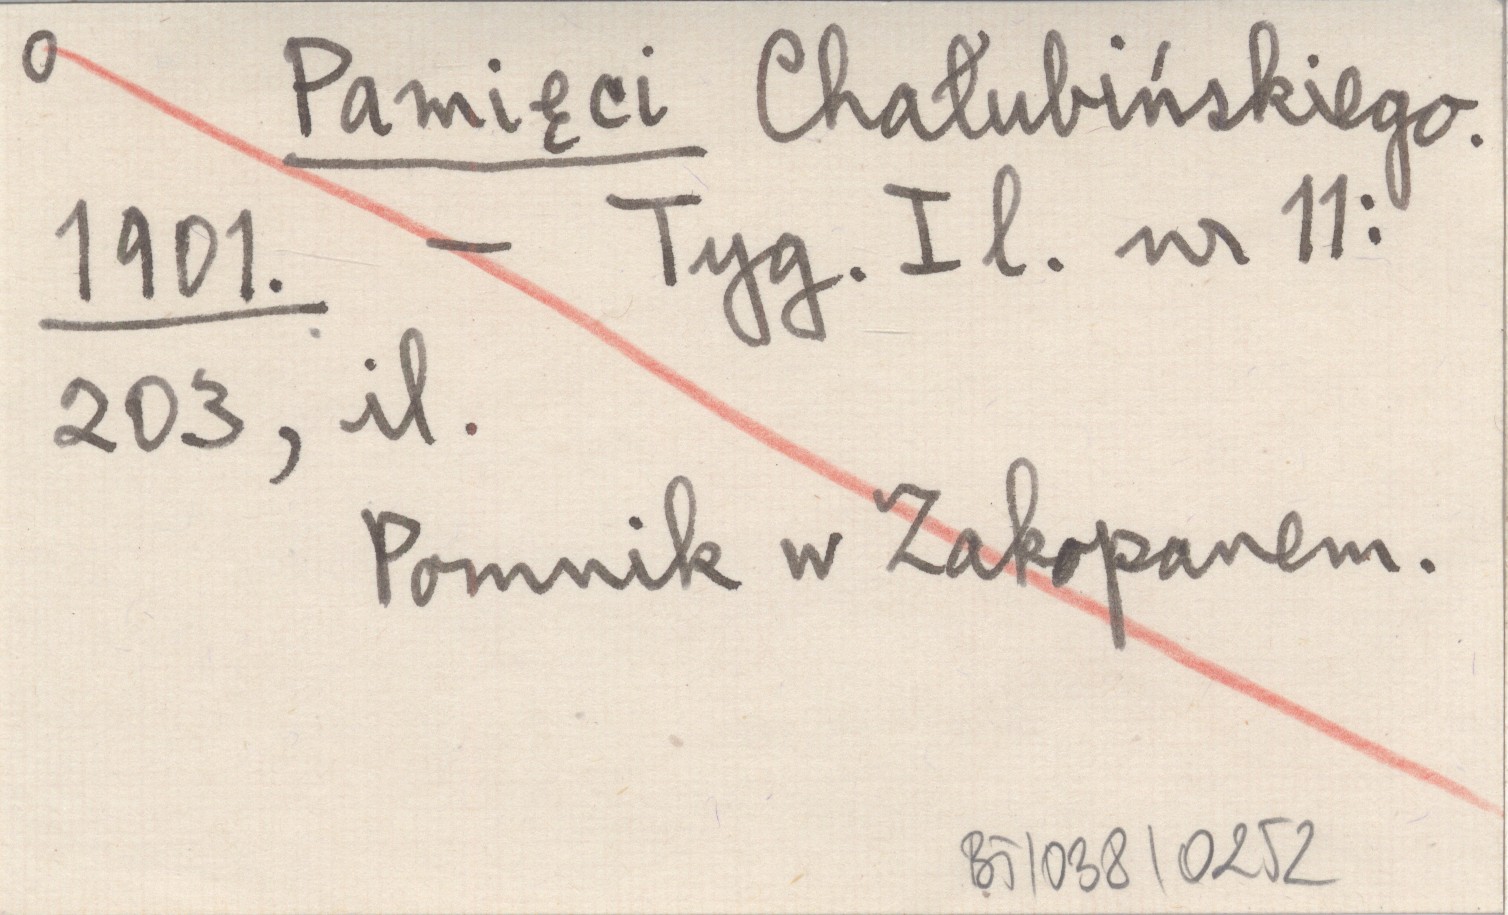 o Pamięci Chałubińskiego.
1901. — Tyg. Il. nr 11:
203, il.
Pomnik w Zakopanem.
BJ/038/0252